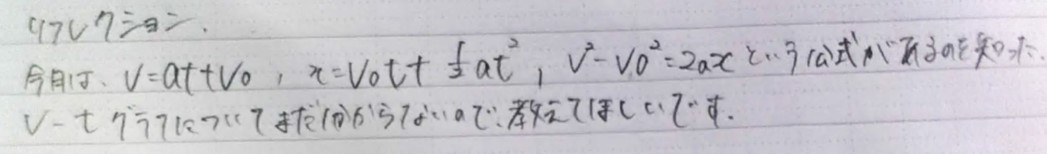 リフレクション.
今日は、V=at+V₀, x=V₀t+½at², V²-V₀²=2axという公式があるのを知った.
V-tグラフについてまだ分からないので、教えてほしいです.